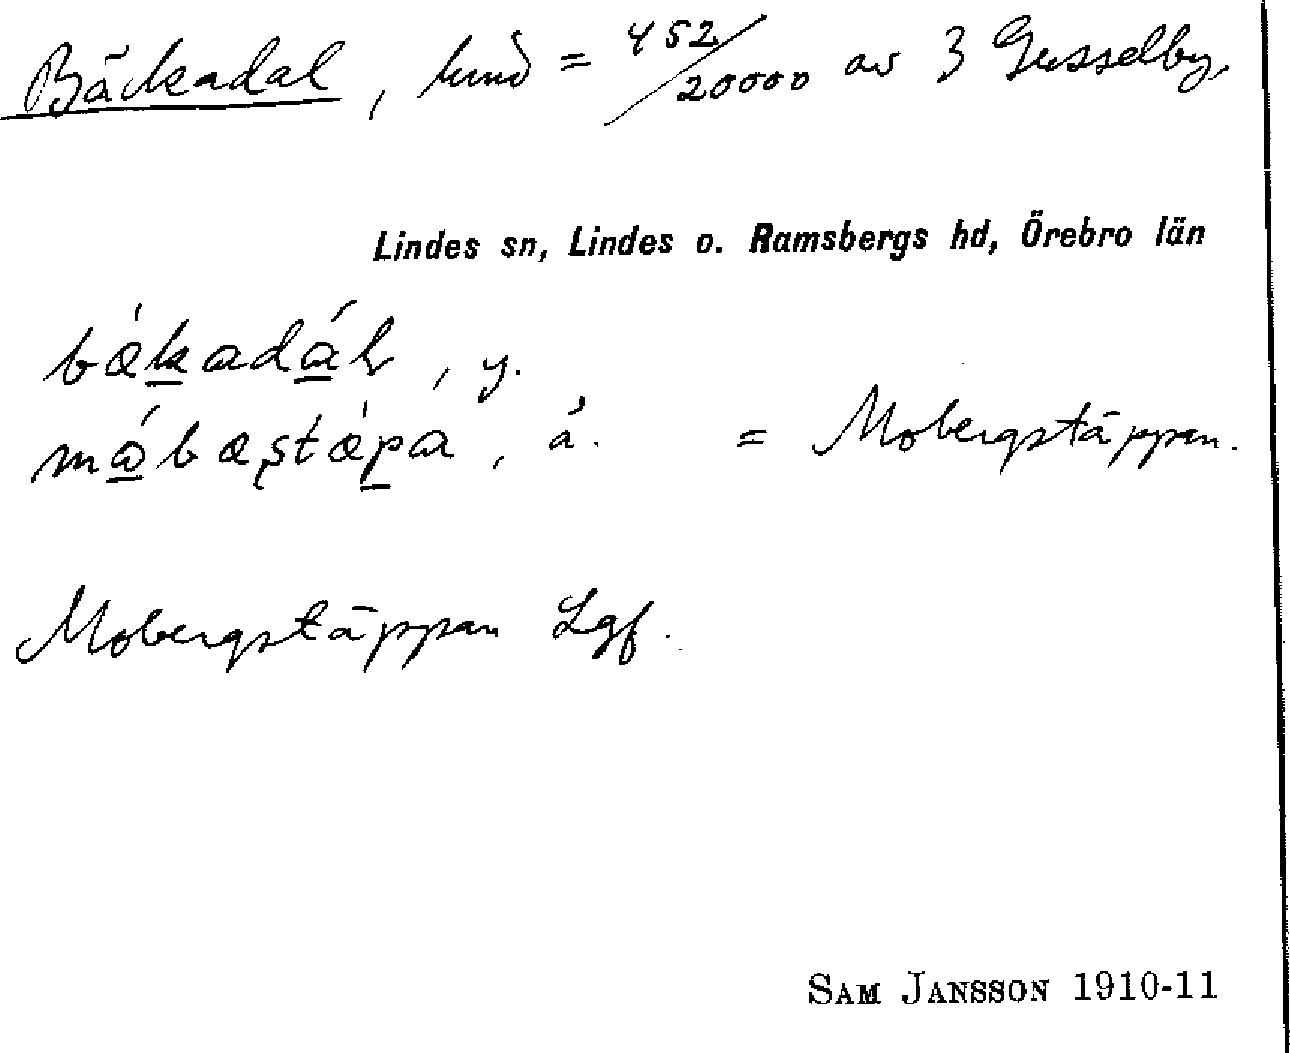 Bäckadal, hmd = 452/20000 av 3 Gusselby,
Lindes sn, Lindes o. Ramsbergs hd, Örebro län
bǽkadál, y.
mǿbæştǽpa, ä. = Mobergstäppan.
Mobergstäppan Lgf.
SAM JANSSON 1910-11